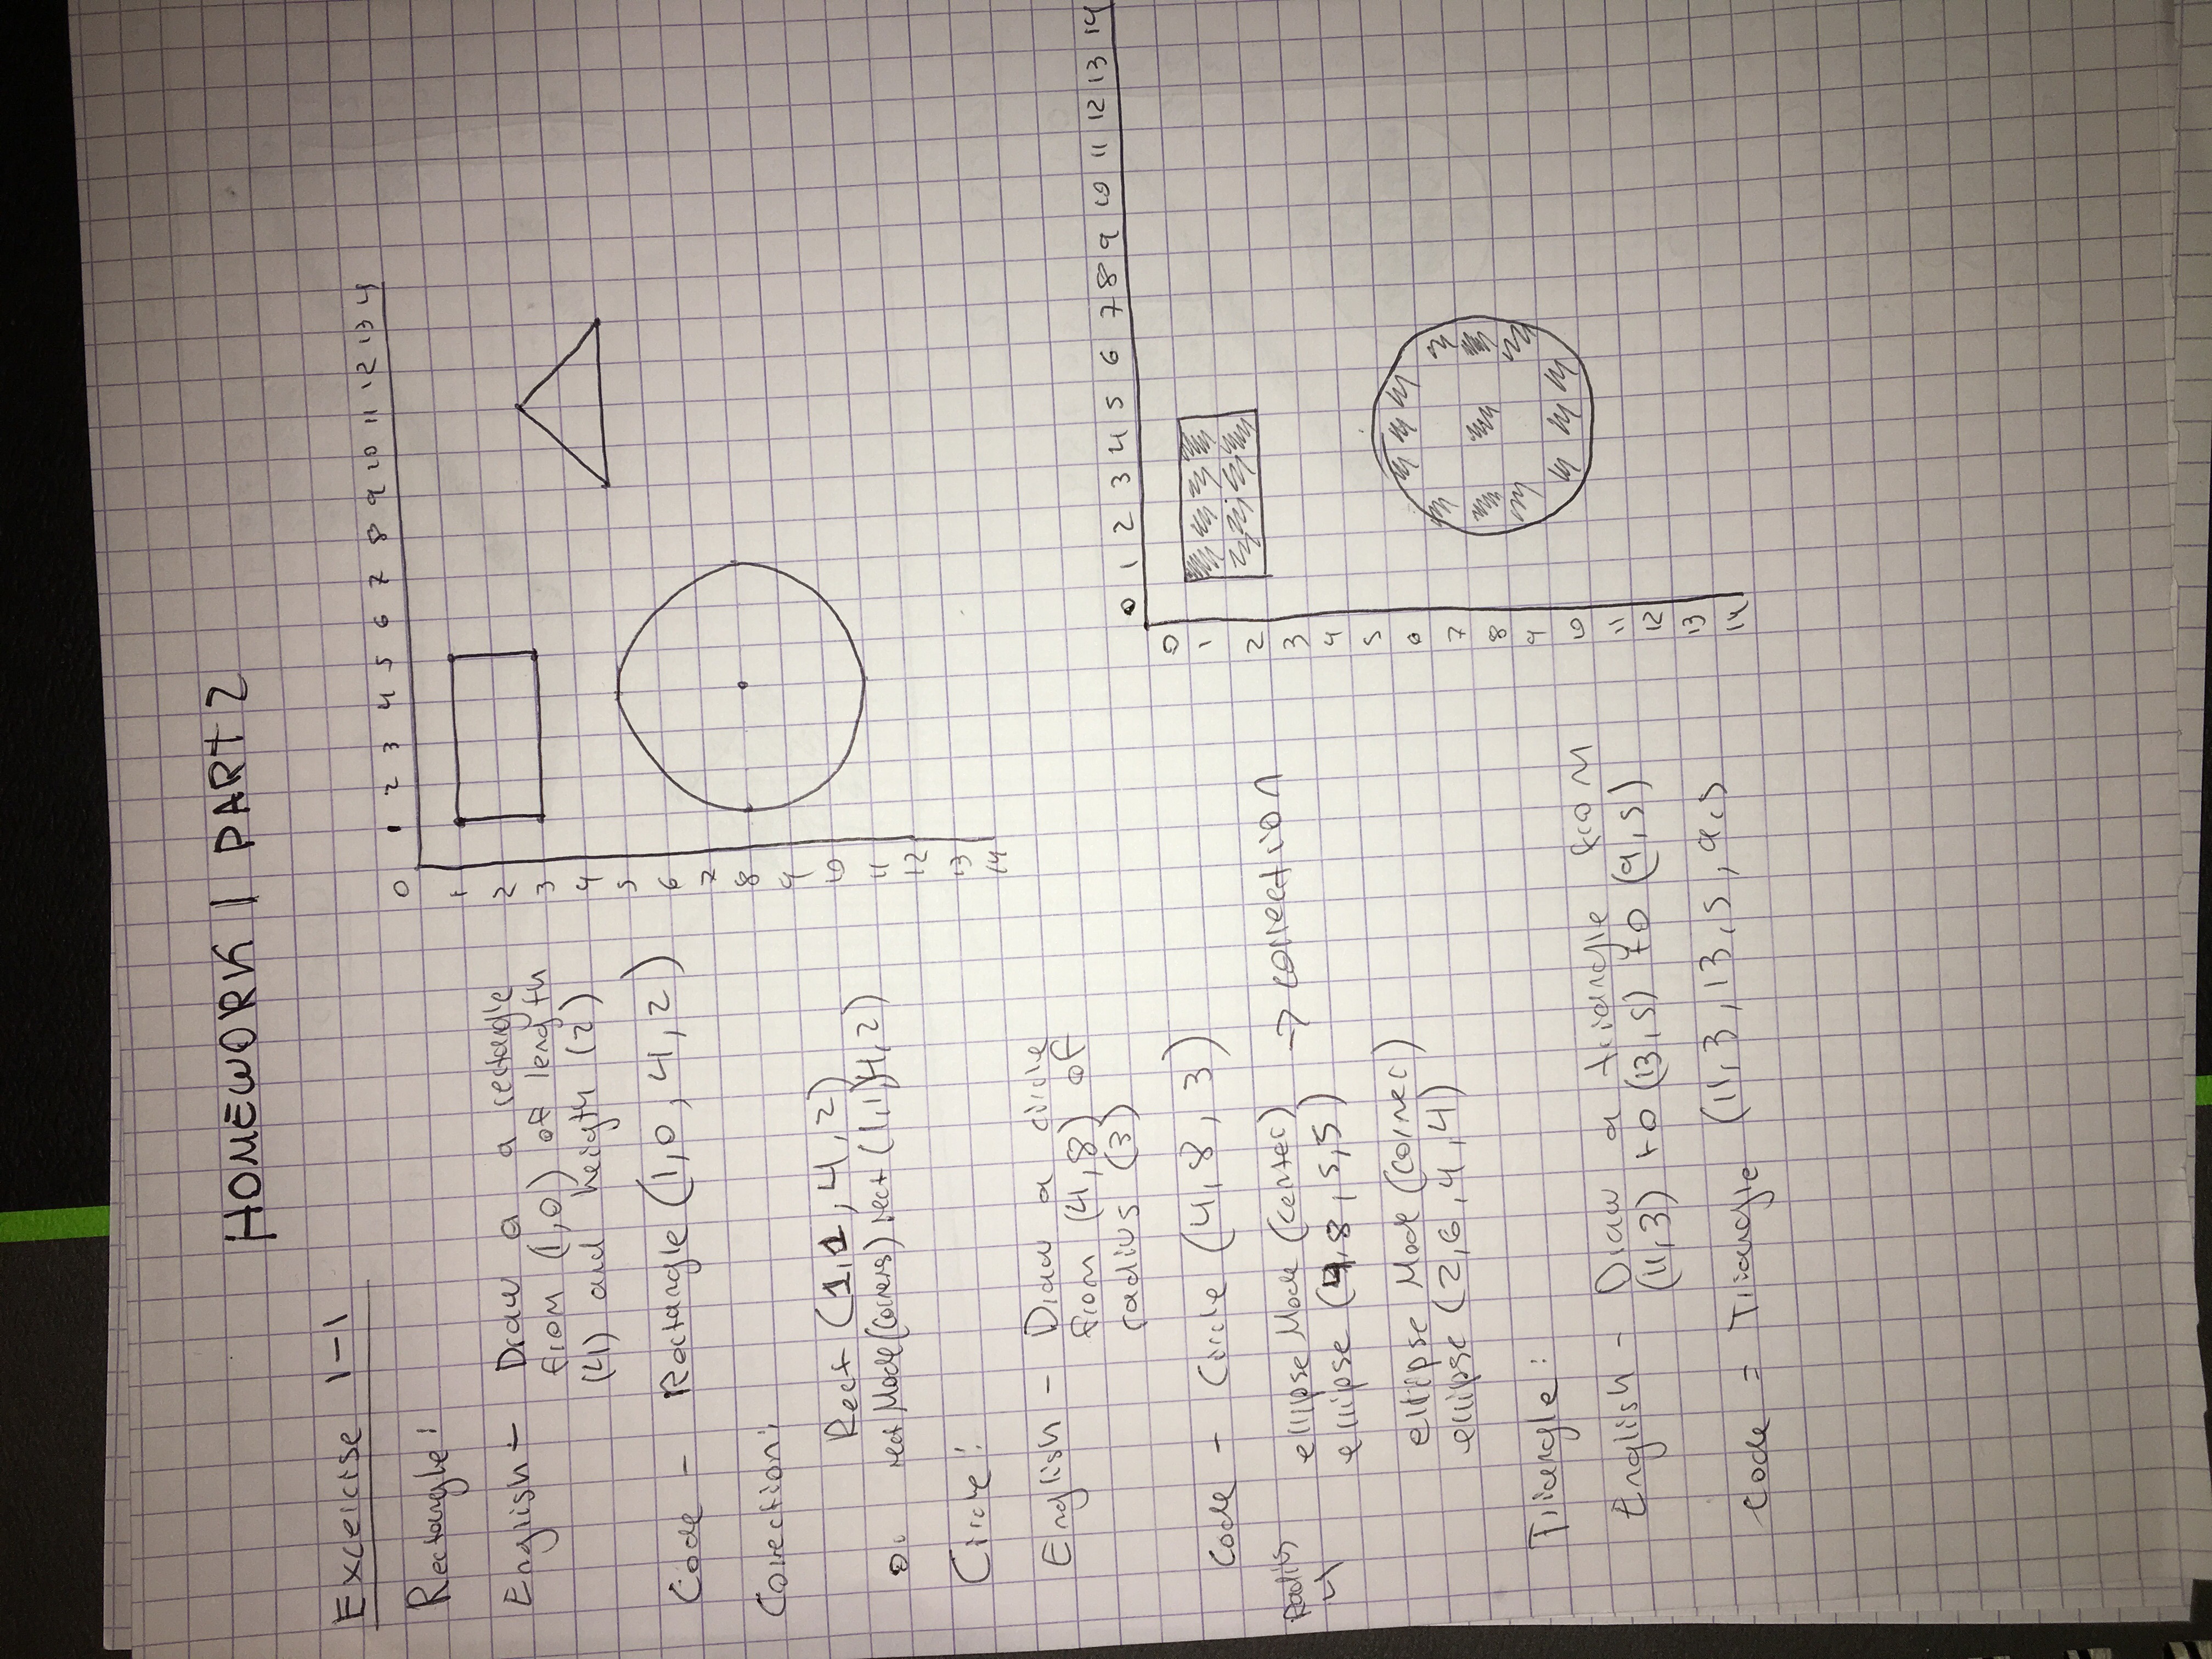 HOMEWORK 1 PART 2
Excercise 1-1
Rectangle:
English - Draw a rectangle
from (1,0) of length
(4) and height (2)
Code - Rectangle (1,0,4,2)
Correction:
Rect (1,1,4,2)
or rectMode(corners) rect (1,1,4,2)
Circle:
English - Draw a circle
from (4,8) of
radius (3)
Code - Circle (4,8,3)
Radius
4
ellipse Mode (center) → correction
ellipse (4,8,5,5)
ellipse Mode (corner)
ellipse (2,6,4,4)
Triangle:
English - Draw a triangle from
(11,3) to (13,5) to (9,5)
Code = Triangle (11,3,13,5,9,5
0 1 2 3 4 5 6 7 8 9 10 11 12 13 14
1
2
3
4
5
6
7
8
9
10
11
12
13
14
0 1 2 3 4 5 6 7 8 9 10 11 12 13 14
0
1
2
3
4
5
6
7
8
9
10
11
12
13
14